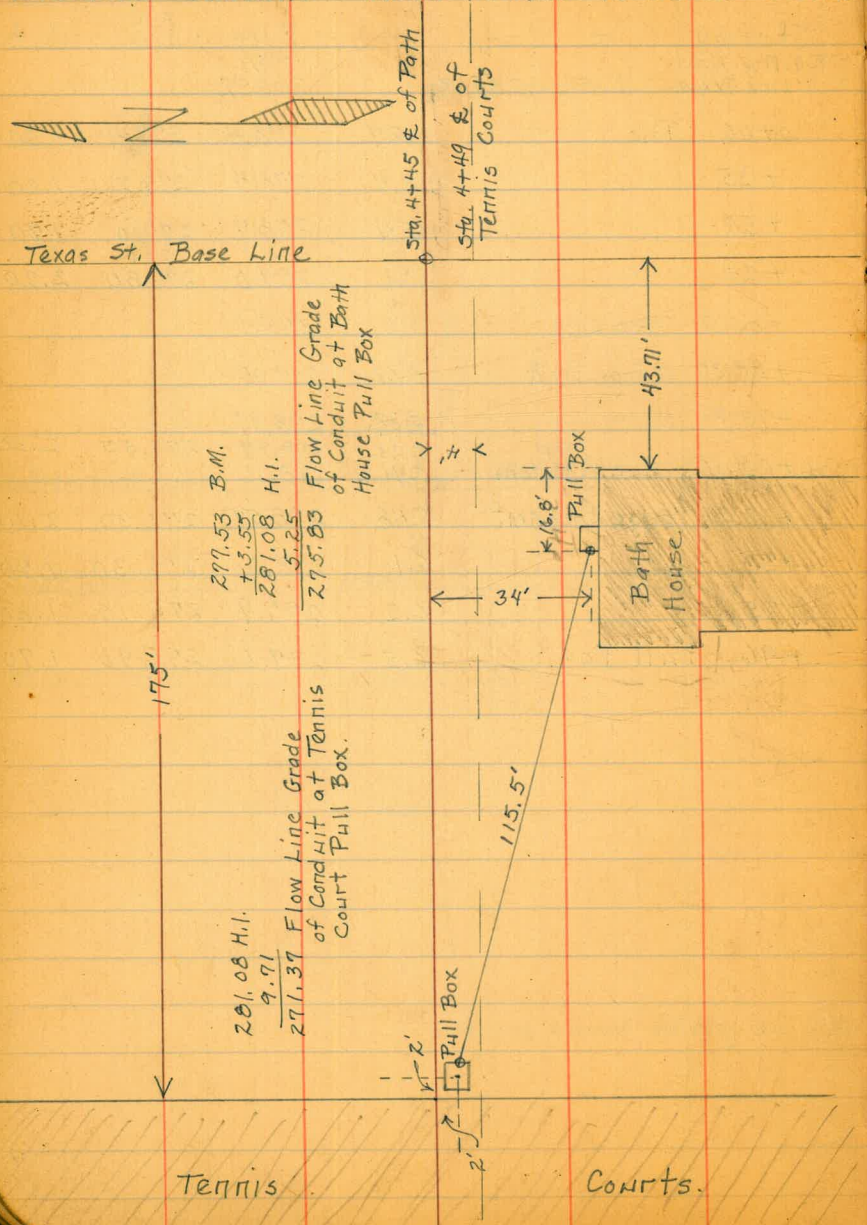 Sta. 4+45 ℄ of Path
Sta. 4+49 ℄ of
Tennis Courts
Texas St. Base Line
175'
43.71'
277.53 B.M.
+3.55
281.08 H.I.
5.25
275.83 Flow Line Grade
of Conduit at Bath
House Pull Box
4'
16.8'
Pull Box
34'
Bath
House
115.5'
281.08 H.I.
9.71
271.37 Flow Line Grade
of Conduit at Tennis
Court Pull Box.
2'
Pull Box
2'
Tennis Courts.